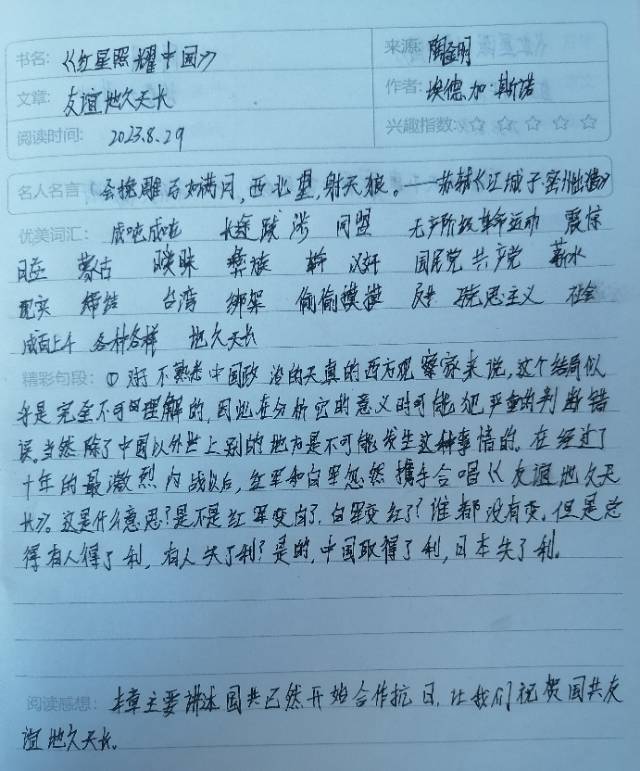 书名: 《红星照耀中国》 来源: 陶金明
文章: 友谊地久天长 作者: 埃德加·斯诺
阅读时间: 2023.8.29 兴趣指数: ☆ ☆ ☆ ☆ ☆
名人名言 会挽雕弓如满月,西北望,射天狼。——苏轼《江城子·密州出猎》
优美词汇: 成吨成吨 长途跋涉 同盟 无产阶级革命运动 震惊
蒙古 暧昧 彝族 汉奸 国民党 共产党 薪水
现实 缔结 台湾 绑架 偷偷摸摸 主义 社会
成百上千 各种各样 地久天长
精彩句段: ①对于不熟悉中国政治的天真的西方观察家来说,这个结局似
乎是完全不可理解的,因此在分析它的意义时可能犯严重的判断错
误。当然除了中国以外世上别的地方是不可能发生这种事情的。在经过了
十年的最激烈内战以后,红军和白军忽然携手合唱《友谊地久天
长》。这是什么意思?是不是红军变白了,白军变红了?谁都没有变。但是总
得有人得了利,有人失了利?是的,中国取得了利,日本失了利。
阅读感想: 本章主要讲述国共已然开始合作抗日,让我们祝贺国共友
谊地久天长。